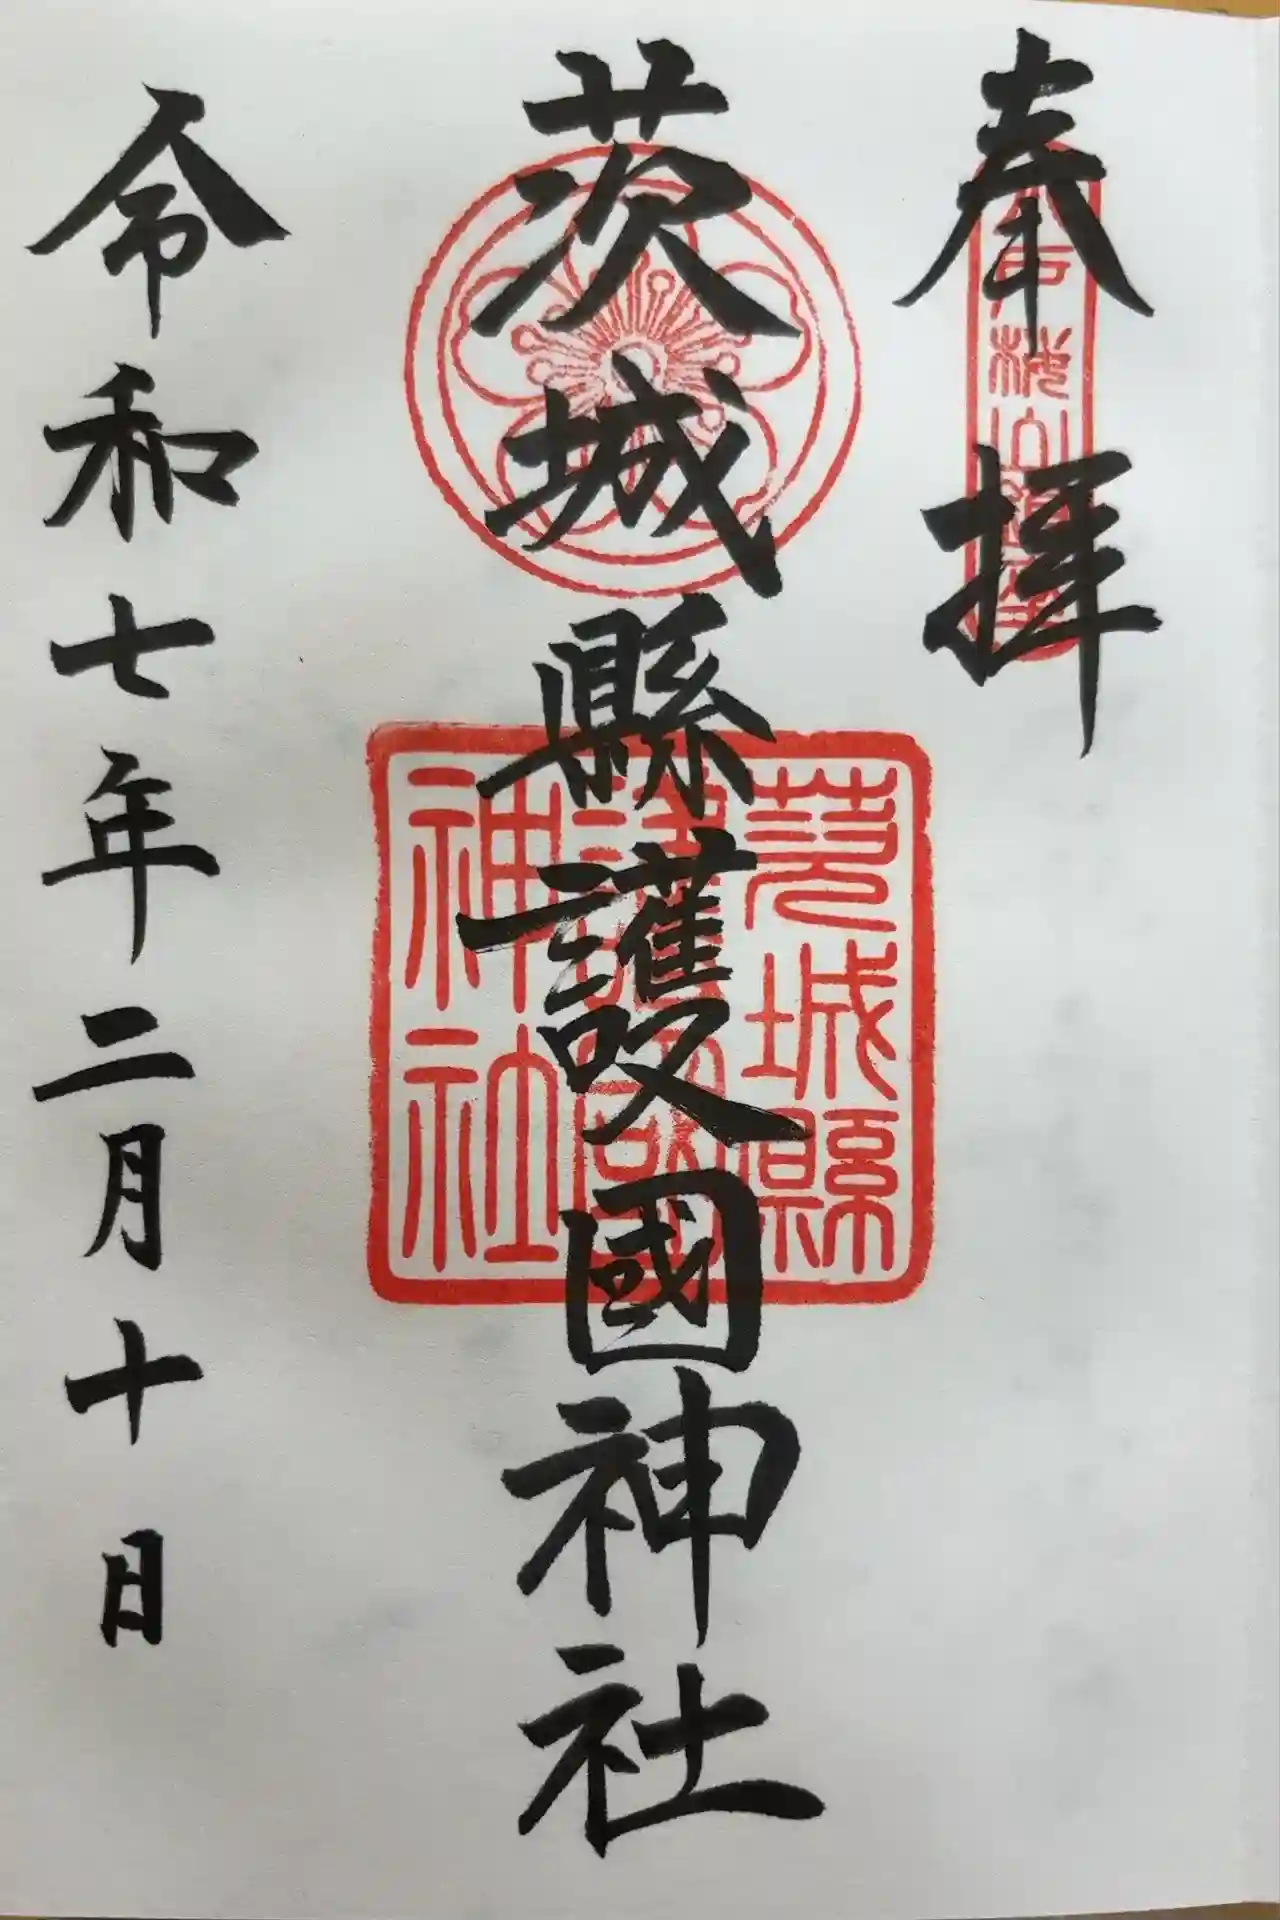 奉拝
茨城縣護國神社
茨城縣
護國
神社
令和七年二月十日